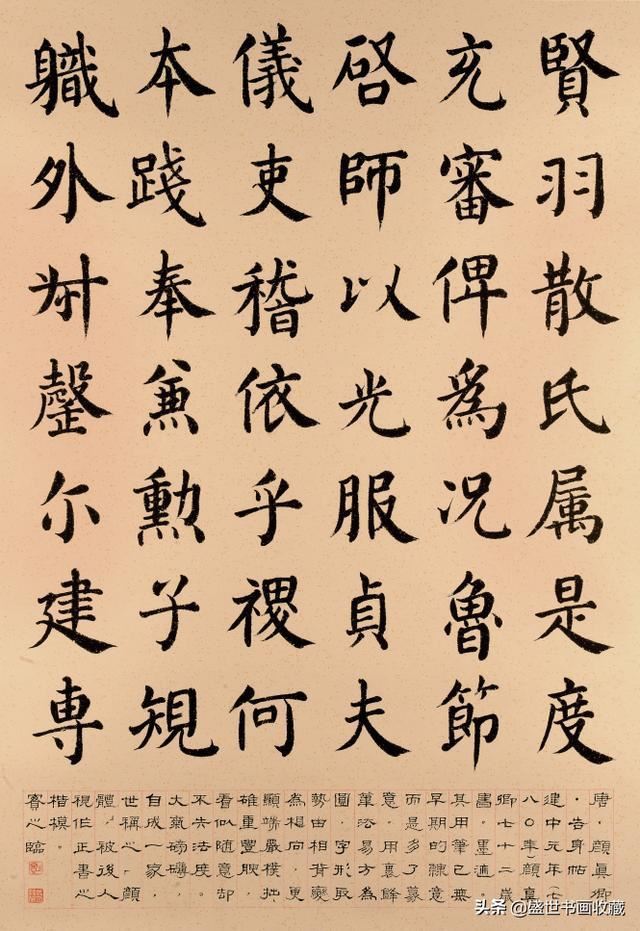 賢羽散氏属是度
充審俾為况魯節
啓師以光服貞夫
儀吏稽依乎禝何
本踐奉兼勲子規
軄外罄尔建専
唐·顔真卿
·告身帖
建中元年(七
八〇年)顔真
卿七十二歲
書。墨迹。
其用筆已無
早期的隸意
而是多了篆
意。用裹鋒
筆法易方為
圓,字形取
勢由相背變
為相向,更
顯端嚴樸拙
雄重豐腴,
看似隨意卻
不失法度。
大氣磅礴,
自成一家,
世稱之“顔
體”被後人
視作正書之
楷模。
賓之臨
头条 @盛世书画收藏